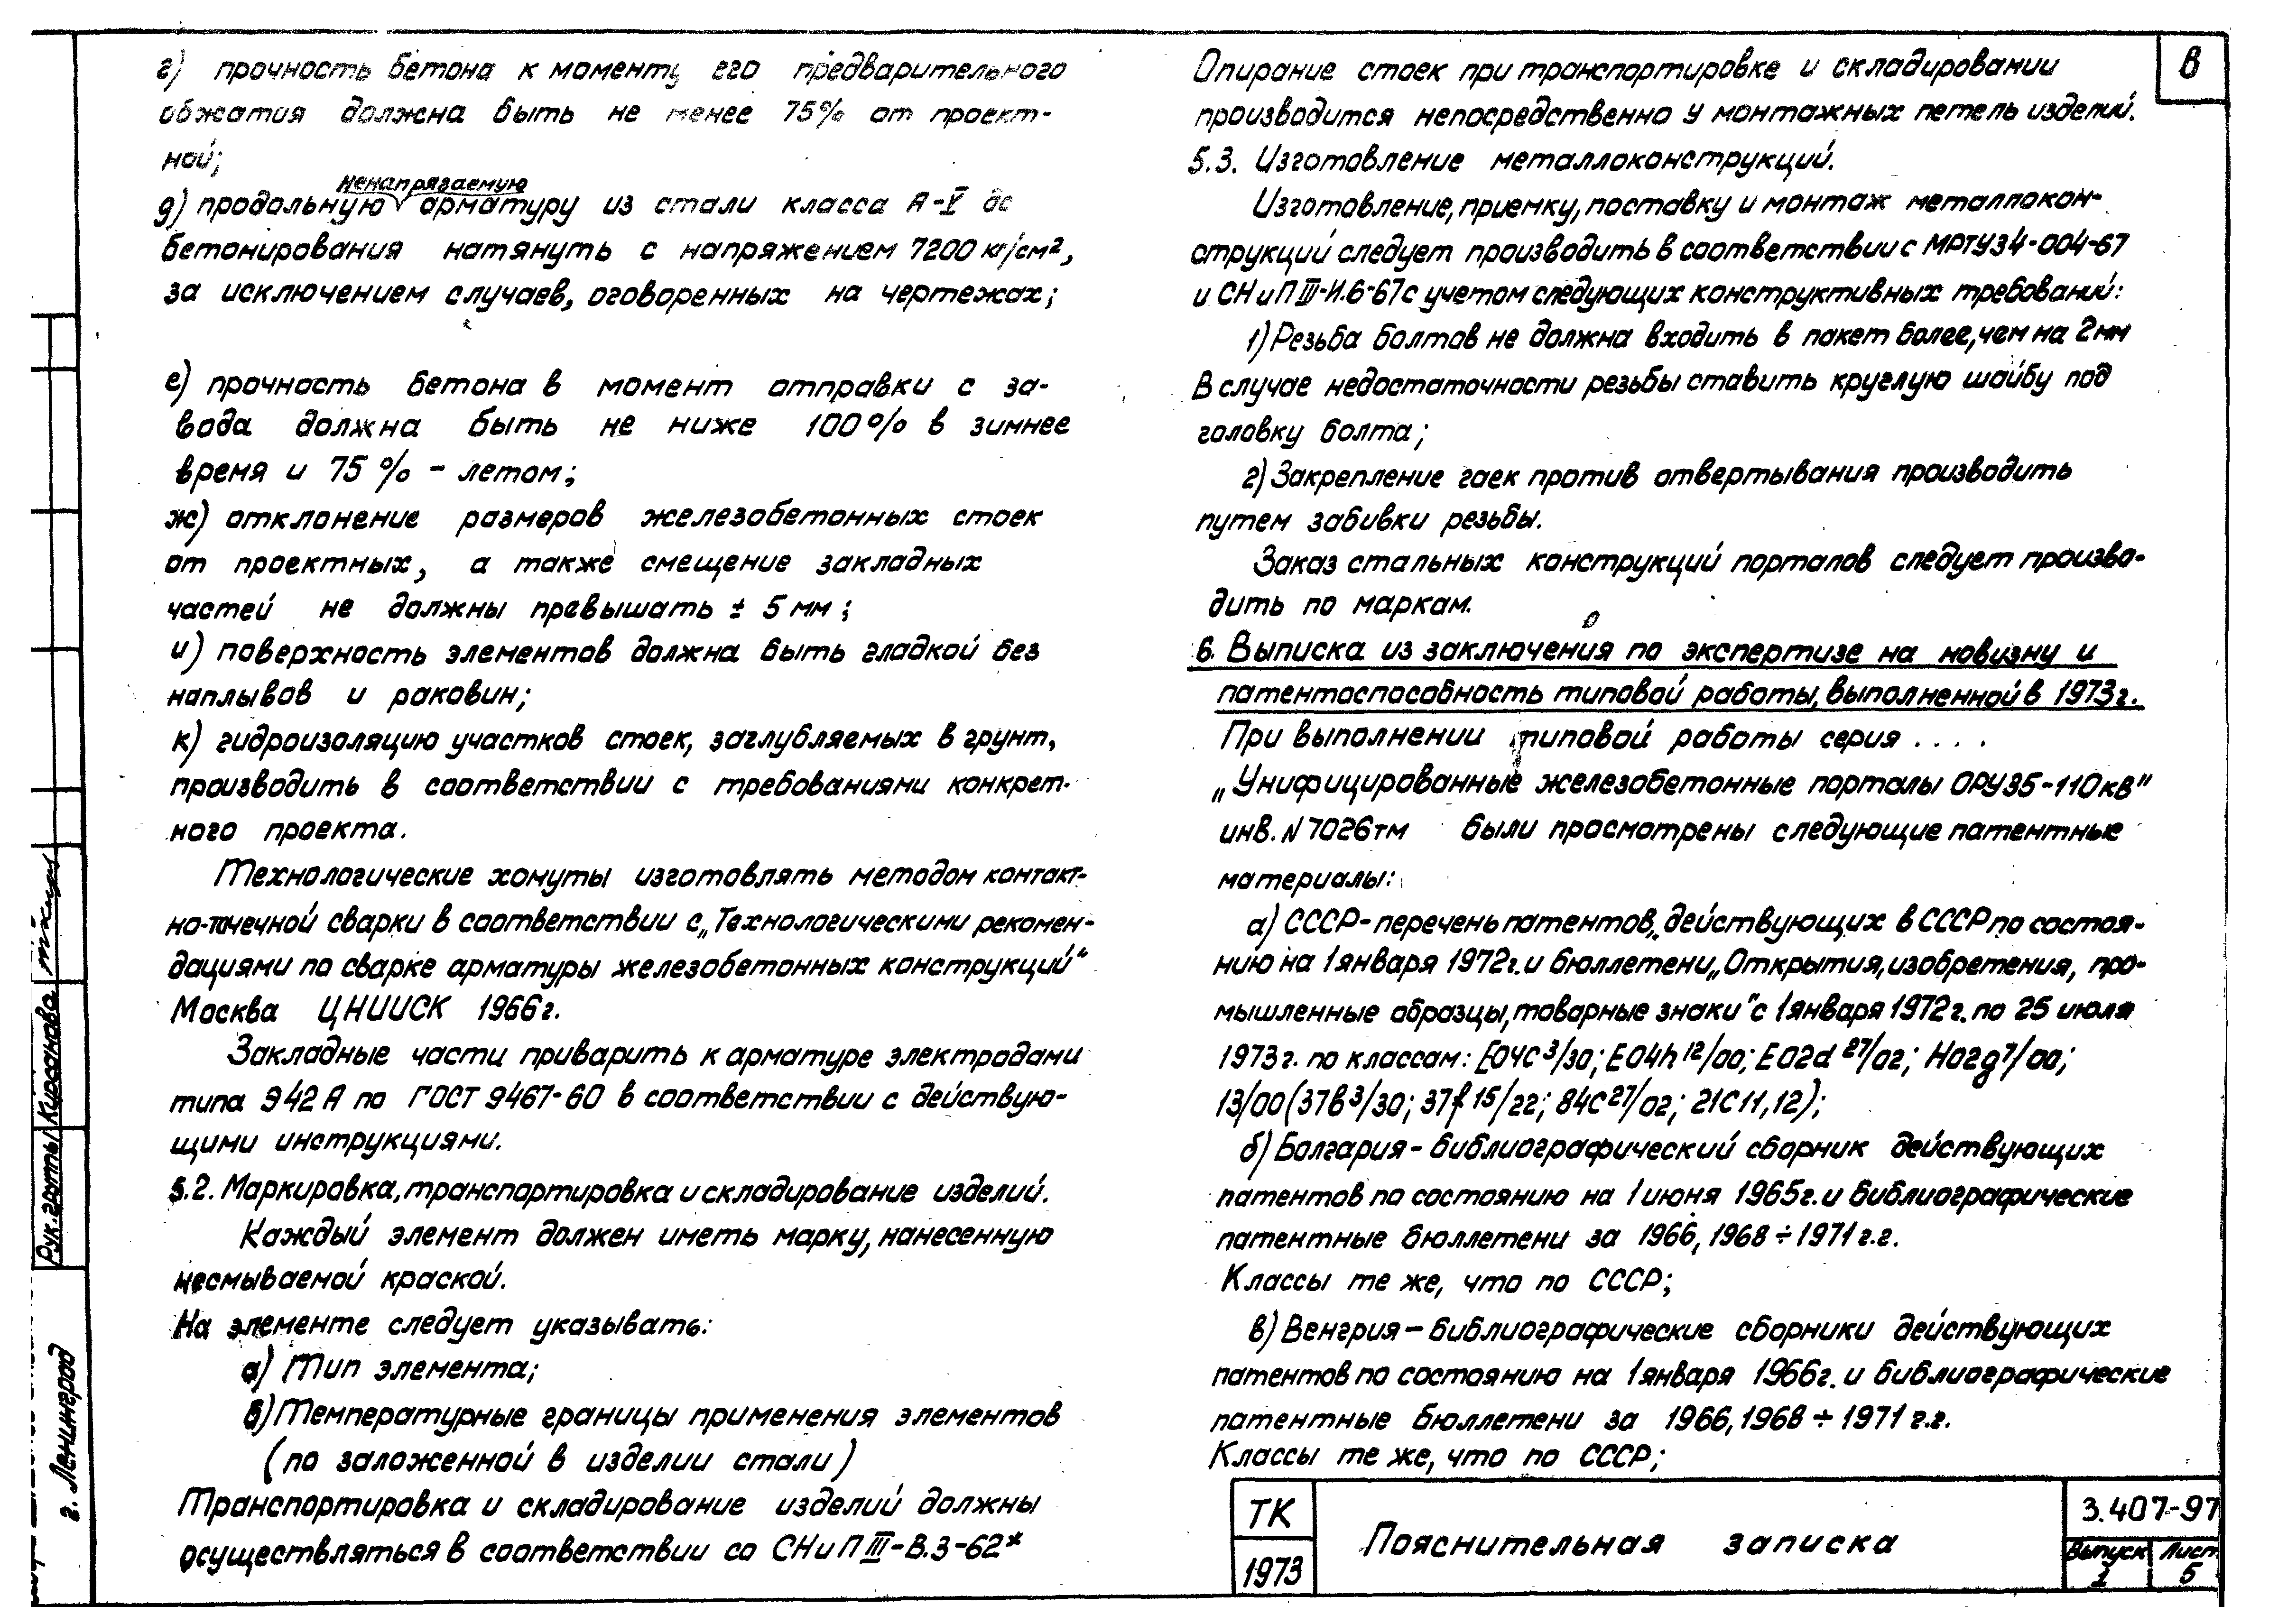 г) прочность бетона к моменту его предварительного
обжатия должна быть не менее 75% от проект-
ной;
ненапрягаемую
д) продольную арматуру из стали класса А-V до
бетонирования натянуть с напряжением 7200 кг/см²,
за исключением случаев, оговоренных на чертежах;
е) прочность бетона в момент отправки с за-
вода должна быть не ниже 100% в зимнее
время и 75% - летом;
ж) отклонение размеров железобетонных стоек
от проектных, а также смещение закладных
частей не должны превышать ± 5 мм;
и) поверхность элементов должна быть гладкой без
наплывов и раковин;
к) гидроизоляцию участков стоек, заглубляемых в грунт,
производить в соответствии с требованиями конкрет-
ного проекта.
Технологические хомуты изготовлять методом контакт-
но-точечной сварки в соответствии с „Технологическими рекомен-
дациями по сварке арматуры железобетонных конструкций"
Москва ЦНИИСК 1966г.
Закладные части приварить к арматуре электродами
типа Э42А по ГОСТ 9467-60 в соответствии с действую-
щими инструкциями.
5.2. Маркировка, транспортировка и складирование изделий.
Каждый элемент должен иметь марку, нанесенную
несмываемой краской.
На элементе следует указывать:
а) Тип элемента;
б) Температурные границы применения элементов
(по заложенной в изделии стали)
Транспортировка и складирование изделий должны
осуществляться в соответствии со СНиП III-В.3-62*
8
Опирание стоек при транспортировке и складировании
производится непосредственно у монтажных петель изделий.
5.3. Изготовление металлоконструкций.
Изготовление, приемку, поставку и монтаж металлокон-
струкций следует производить в соответствии с МРТУ34-004-67
и СНиП III-И.6-67 с учетом следующих конструктивных требований:
1) Резьба болтов не должна входить в пакет более, чем на 2мм
В случае недостаточности резьбы ставить круглую шайбу под
головку болта;
2) Закрепление гаек против отвертывания производить
путем забивки резьбы.
Заказ стальных конструкций порталов следует произво-
дить по маркам.
6. Выписка из заключения по экспертизе на новизну и
патентоспособность типовой работы, выполненной в 1973г.
При выполнении типовой работы серия ....
„Унифицированные железобетонные порталы ОРУ35-110кв"
инв. N 7026тм были просмотрены следующие патентные
материалы:
а) СССР-перечень патентов, действующих в СССР по состоя-
нию на 1 января 1972г. и бюллетени „Открытия, изобретения, про-
мышленные образцы, товарные знаки" с 1 января 1972г. по 25 июля
1973г. по классам: E04C 3/30; E04h 12/00; E02d 27/02; H02g 7/00;
13/00 (37в 3/30; 37f 15/22; 84C 27/02; 21C 11, 12);
б) Болгария - библиографический сборник действующих
патентов по состоянию на 1 июня 1965г. и библиографические
патентные бюллетени за 1966, 1968 ÷ 1971 г.г.
Классы те же, что по СССР;
в) Венгрия - библиографические сборники действующих
патентов по состоянию на 1 января 1966г. и библиографические
патентные бюллетени за 1966, 1968 ÷ 1971 г.г.
Классы те же, что по СССР;
ТК
1973
Пояснительная записка
3.407-97
Выпуск
1
Лист
5
Рук. группы Кирсанова
г. Ленинград